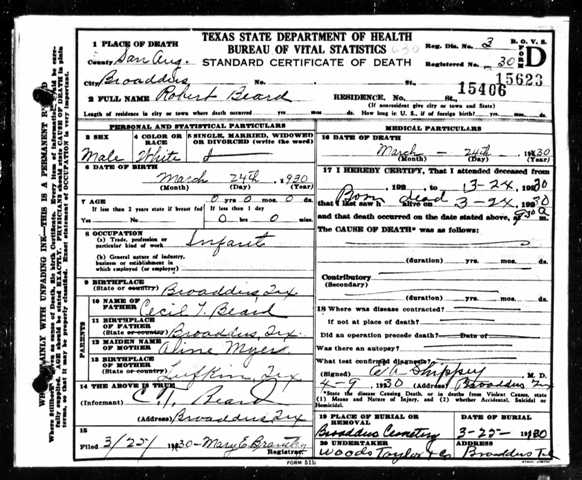 TEXAS STATE DEPARTMENT OF HEALTH
BUREAU OF VITAL STATISTICS
STANDARD CERTIFICATE OF DEATH
R. O. V. S.
FORM D
Reg. Dis. No. 3
Registered No. 30
15623
15406
1 PLACE OF DEATH
County San Aug.
City Broaddus No. St.
2 FULL NAME Robert Beard RESIDENCE. No. St.
(If nonresident give city or town and State)
Length of residence in city or town where death occurred yrs. mos. ds. How long in U. S., if of foreign birth? yrs. mos. ds.
PERSONAL AND STATISTICAL PARTICULARS
3 SEX
Male
4 COLOR OR RACE
White
5 SINGLE, MARRIED, WIDOWED OR DIVORCED (write the word)
6 DATE OF BIRTH
March 24th 1930
(Month) (Day) (Year)
7 AGE 0 yrs 0 mos. 0 ds.
If less than 2 years state if breast fed
Yes No
If less than 1 day
0 hrs 0 min.
8 OCCUPATION
(a) Trade, profession or particular kind of work Infant
(b) General nature of industry, business or establishment in which employed (or employer)
9 BIRTHPLACE
(State or country) Broaddus, Tex
PARENTS
10 NAME OF FATHER
Cecil T. Beard
11 BIRTHPLACE OF FATHER
(State or country) Broaddus, Tex.
12 MAIDEN NAME OF MOTHER
13 BIRTHPLACE OF MOTHER
(State or country) Lufkin, Tex
14 THE ABOVE IS TRUE
(Informant) Beard
(Address) Broaddus Tex
15
Filed 3/25/ 1930 Mary E.
Registrar
FORM 511
MEDICAL PARTICULARS
16 DATE OF DEATH
March 24th 1930
(Month) (Day) (Year)
17 I HEREBY CERTIFY, That I attended deceased from
192 to 3-24, 1930
that I last saw Born dead alive on 3-24, 1930
and that death occurred on the date stated above,
The CAUSE OF DEATH* was as follows:
(duration) yrs. mos. ds.
Contributory
(Secondary)
(duration) yrs. mos. ds.
18 Where was disease contracted?
If not at place of death?
Did an operation precede death? Date of
Was there an autopsy?
What test confirmed diagnosis?
(Signed) Shippey M. D.
4-9, 1930 (Address) Broaddus Tex
*State the Disease Causing Death, or in deaths from Violent Causes, state (1) Means and Nature of Injury, and (2) whether Accidental, Suicidal or Homicidal.
19 PLACE OF BURIAL OR REMOVAL
Broaddus Cemetery
DATE OF BURIAL
3-25- 1930
20 UNDERTAKER
Woods Taylor & Co
ADDRESS
Broaddus Tex